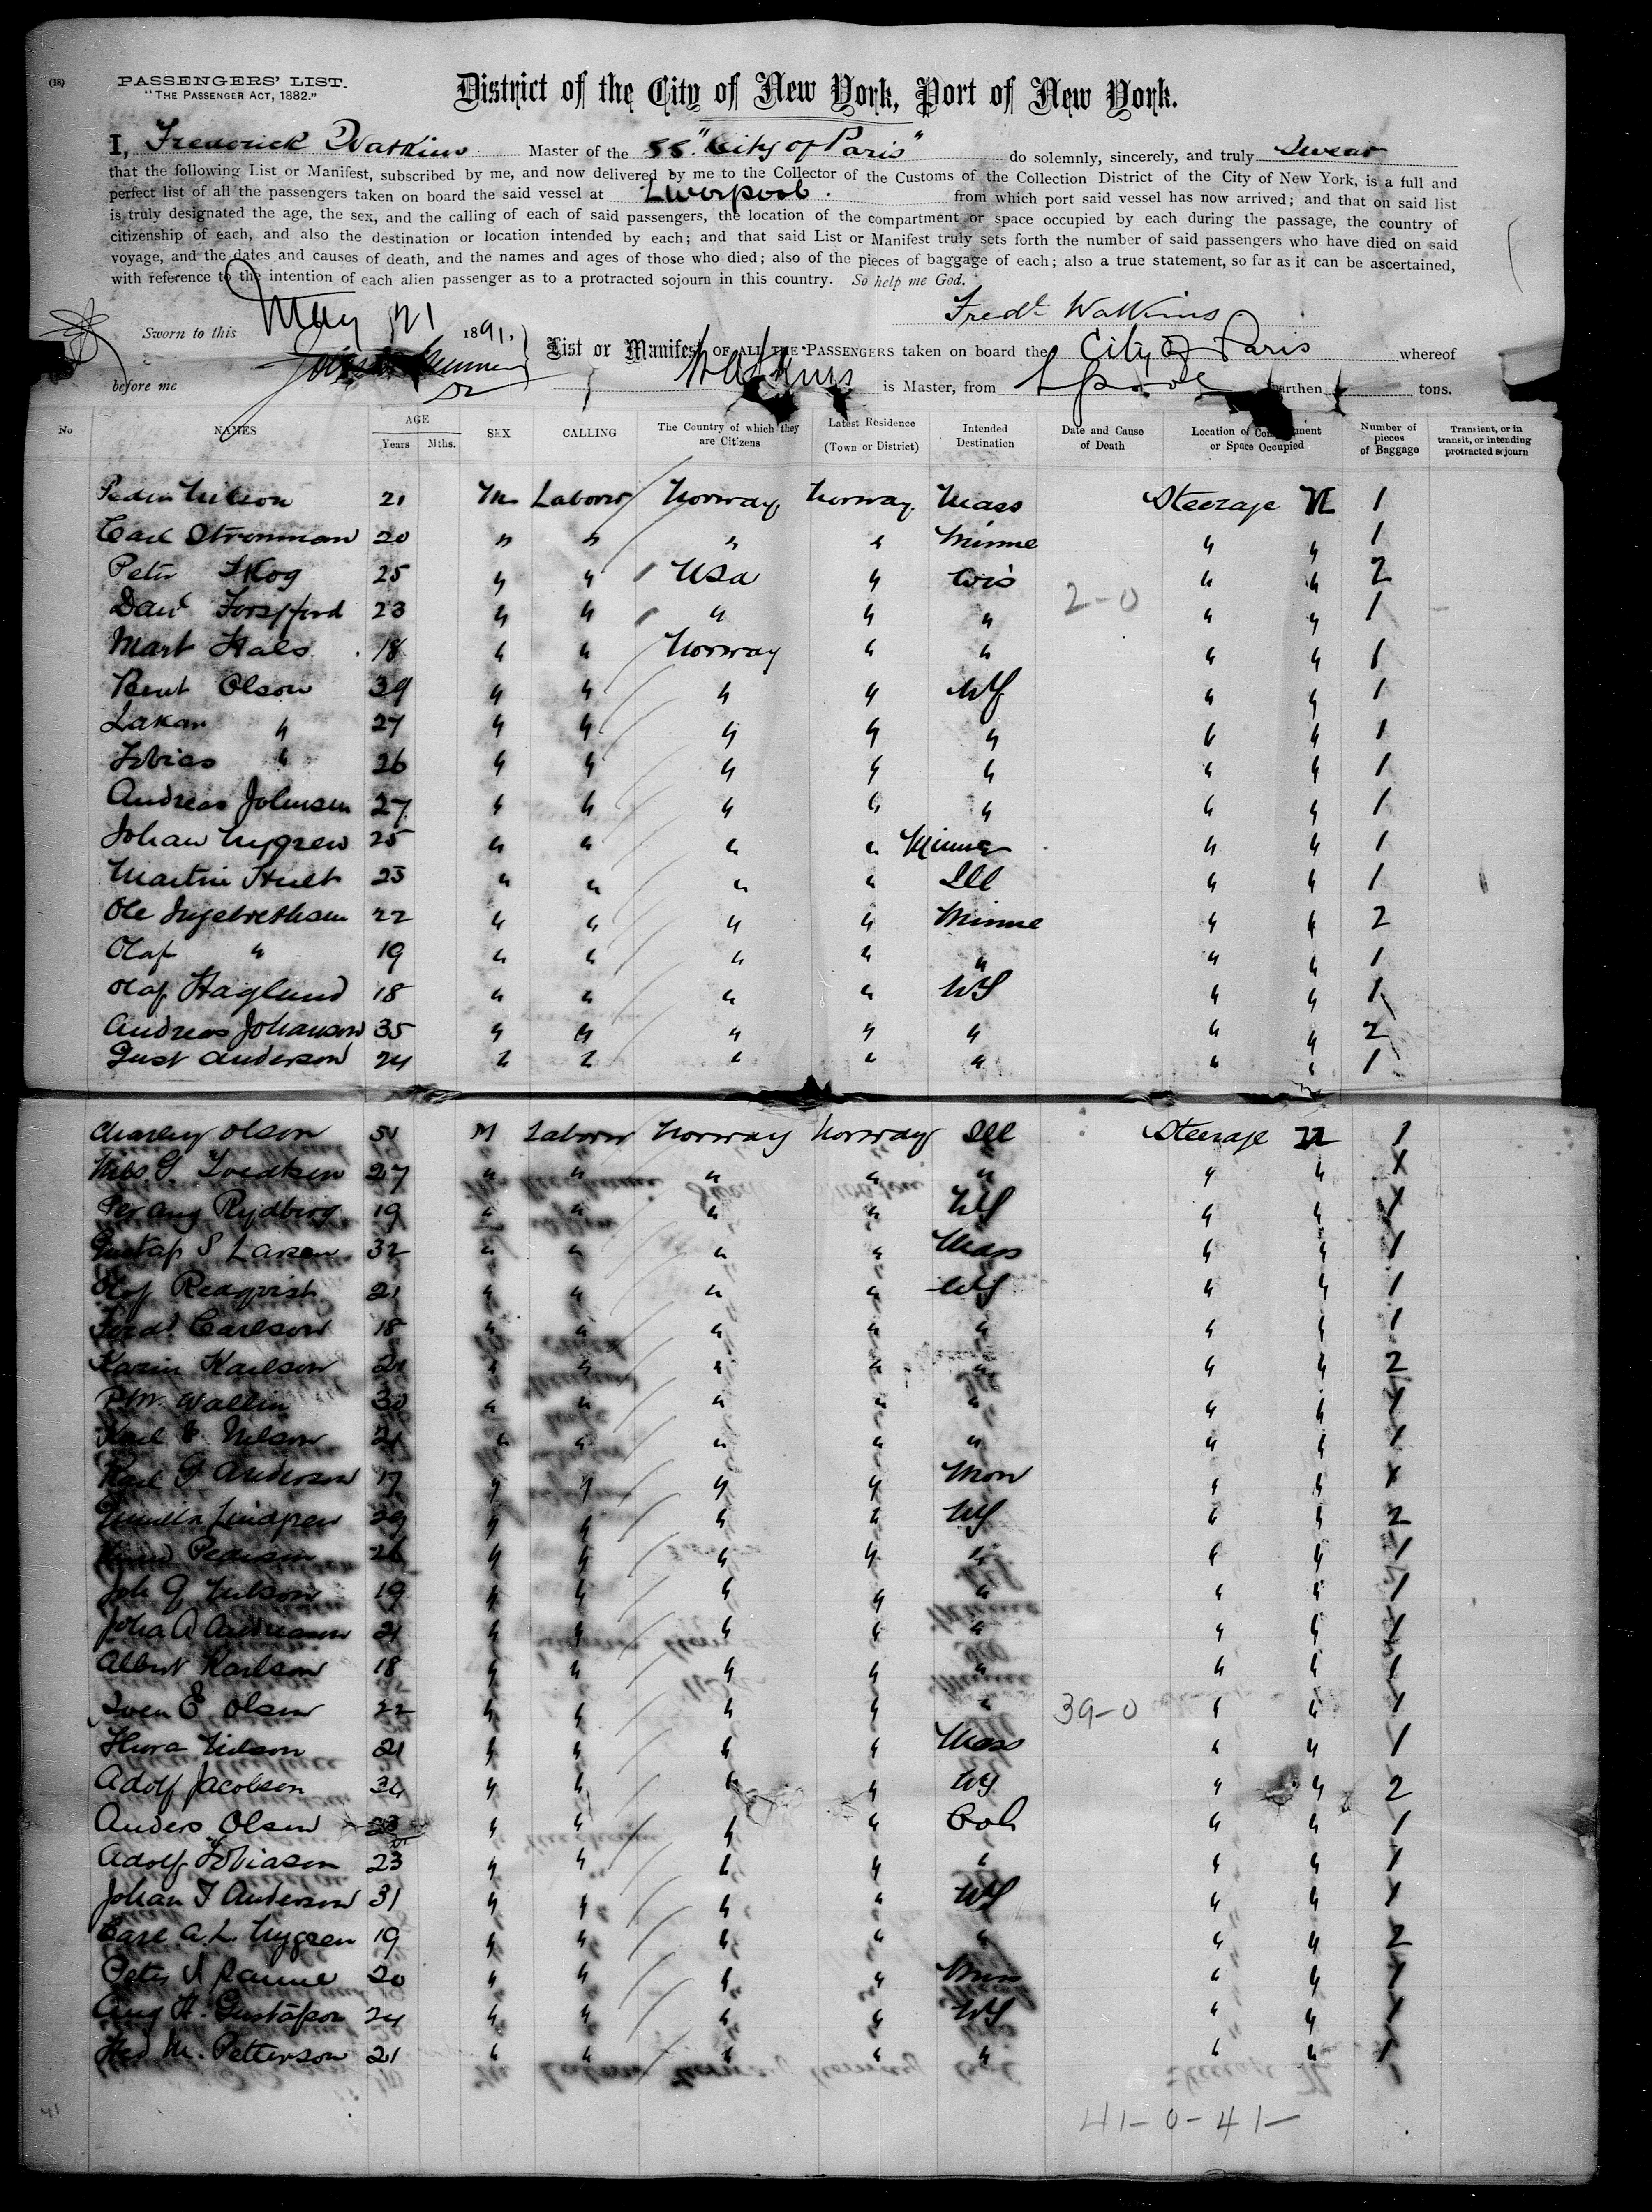 (18)
PASSENGERS' LIST.
"THE PASSENGER ACT, 1882."
District of the City of New York, Port of New York.
I, Frederick Watkins Master of the SS. "City of Paris" do solemnly, sincerely, and truly Swear
that the following List or Manifest, subscribed by me, and now delivered by me to the Collector of the Customs of the Collection District of the City of New York, is a full and
perfect list of all the passengers taken on board the said vessel at Liverpool. from which port said vessel has now arrived; and that on said list
is truly designated the age, the sex, and the calling of each of said passengers, the location of the compartment or space occupied by each during the passage, the country of
citizenship of each, and also the destination or location intended by each; and that said List or Manifest truly sets forth the number of said passengers who have died on said
voyage, and the dates and causes of death, and the names and ages of those who died; also of the pieces of baggage of each; also a true statement, so far as it can be ascertained,
with reference to the intention of each alien passenger as to a protracted sojourn in this country. So help me God.
Fredk Watkins
Sworn to this May 21 1891.
List or Manifest OF ALL THE PASSENGERS taken on board the City of Paris whereof
before me Watkins is Master, from Lpool burthen tons.
No NAMES AGE Years Mths. SEX CALLING The Country of which they are Citizens Latest Residence (Town or District) Intended Destination Date and Cause of Death Location of Compartment or Space Occupied Number of pieces of Baggage Transient, or in transit, or intending protracted sojourn
Nilson 21 M Laborer Norway Norway Mass Steerage 1
Carl Stromman 20 " " " " Minne " " 1
Peter Skog 25 " " USa " Wis " " 2
23 " " " " " 2-0 " " 1
Mart Hals 18 " " Norway " " " " 1
Bent Olson 39 " " " " NY " " 1
Lakar " 27 " " " " " " " 1
Tobias " 26 " " " " " " " 1
Andreas Johnsen 27 " " " " " " " 1
Johan Nygren 25 " " " " Minne " " 1
Martin Hult 23 " " " " Ill " " 1
Ole Ingebrethsen 22 " " " " Minne " " 2
Olaf " 19 " " " " " " " 1
Olaf Haglund 18 " " " " NY " " 1
Andreas Johanson 35 " " " " " " " 2
Gust Anderson 24 " " " " " " " 1
Charley Olson M Laborer Norway Norway Ill Steerage 1
Nils G. 27 " " " " " " " 1
Per Aug Rydberg 19 " " " " NY " " 1
Gustaf S Larsen 32 " " " " Mass " " 1
Olof Redqvist 21 " " " " NY " " 1
Ferdd Carlson 18 " " " " " " " 1
Karin Karlson " " " " " " " 2
P.W. Wallin 30 " " " " " " " 1
Karl E. Nilson 21 " " " " " " " 1
Karl G Anderson 17 " " " " " " 1
Lindgren 29 " " " " NY " " 2
Pederson 26 " " " " " " " 1
Joh G Nilson 19 " " " " " " " 1
Joha A Andreasen 21 " " " " " " " 1
Albert Karlson 18 " " " " " " " 1
Sven E Olsen 22 " " " " " 39-0 " " 1
Nilson 21 " " " " Mass " " 1
Adolf Jacobsen 34 " " " " NY " " 2
Anders Olsen 23 " " " " Col " " 1
Adolf Tobiasen 23 " " " " " " " 1
Johan F Anderson 31 " " " " NY " " 1
Carl A.L. Nygren 19 " " " " " " " 2
Peter 20 " " " " " " 1
Aug H. Gustafson 24 " " " " NY " " 1
M. Petterson 21 " " " " " " " 1
41
41-0-41-